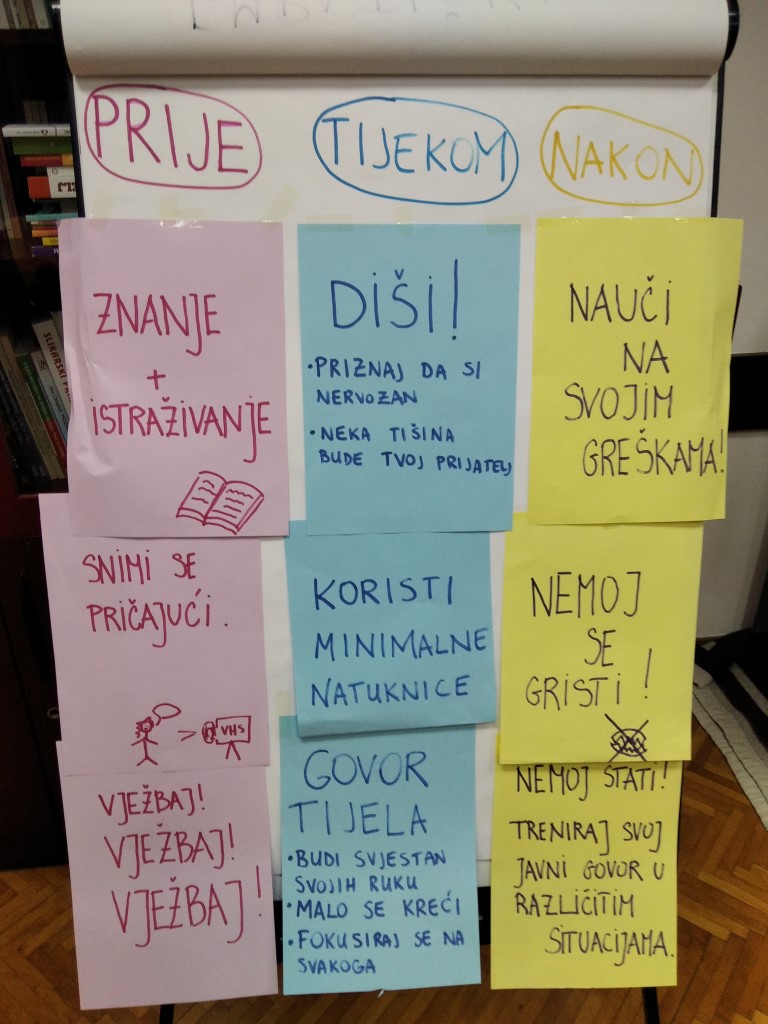 PRIJE
ZNANJE
+
ISTRAŽIVANJE
SNIMI SE
PRIČAJUĆI.
VHS
VJEŽBAJ!
VJEŽBAJ!
VJEŽBAJ!
TIJEKOM
DIŠI!
•PRIZNAJ DA SI
NERVOZAN
•NEKA TIŠINA
BUDE TVOJ PRIJATELJ
KORISTI
MINIMALNE
NATUKNICE
GOVOR
TIJELA
•BUDI SVJESTAN
SVOJIH RUKU
•MALO SE KREĆI
•FOKUSIRAJ SE NA
SVAKOGA
NAKON
NAUČI
NA
SVOJIM
GREŠKAMA!
NEMOJ
SE
GRISTI!
NEMOJ STATI!
TRENIRAJ SVOJ
JAVNI GOVOR U
RAZLIČITIM
SITUACIJAMA.